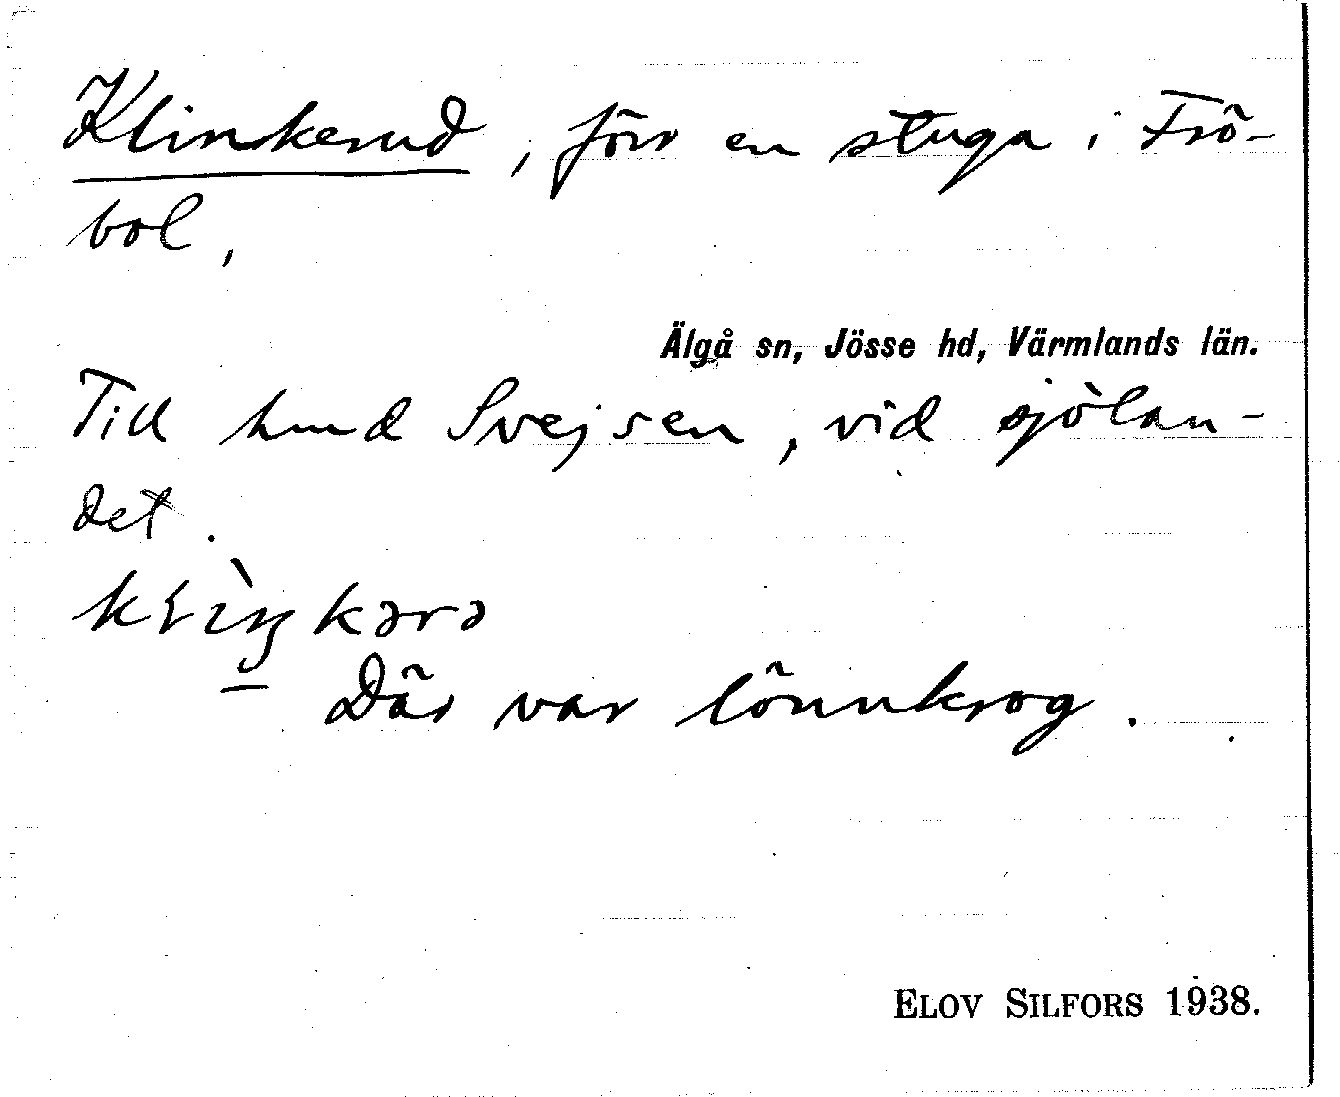 Klinkerud, förr en stuga i Frö-
bol,
Älgå sn, Jösse hd, Värmlands län.
Till hmd Svejsen, vid sjölan-
det.
klìŋkərə
Där var lönnkrog.
ELOV SILFORS 1938.